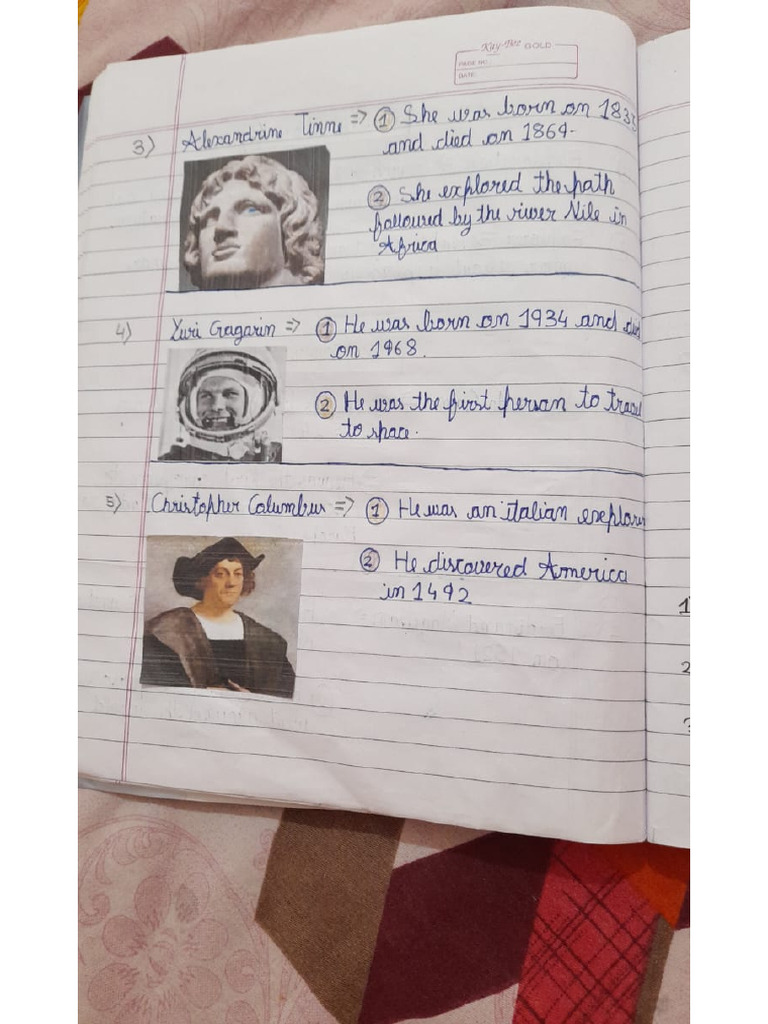 Kay-Bee GOLD
PAGE NO.:
DATE:
3) Alexandrine Tinne => ① She was born on 1835
and died on 1869.
② She explored the path
falloured by the river Nile in
Africa
4) Yuri Gagarin => ① He was born on 1934 and died
on 1968.
② He was the first person to travel
to space.
5) Christopher Columbus => ① He was an italian explorer
② He discovered America
in 1492
1
2
3